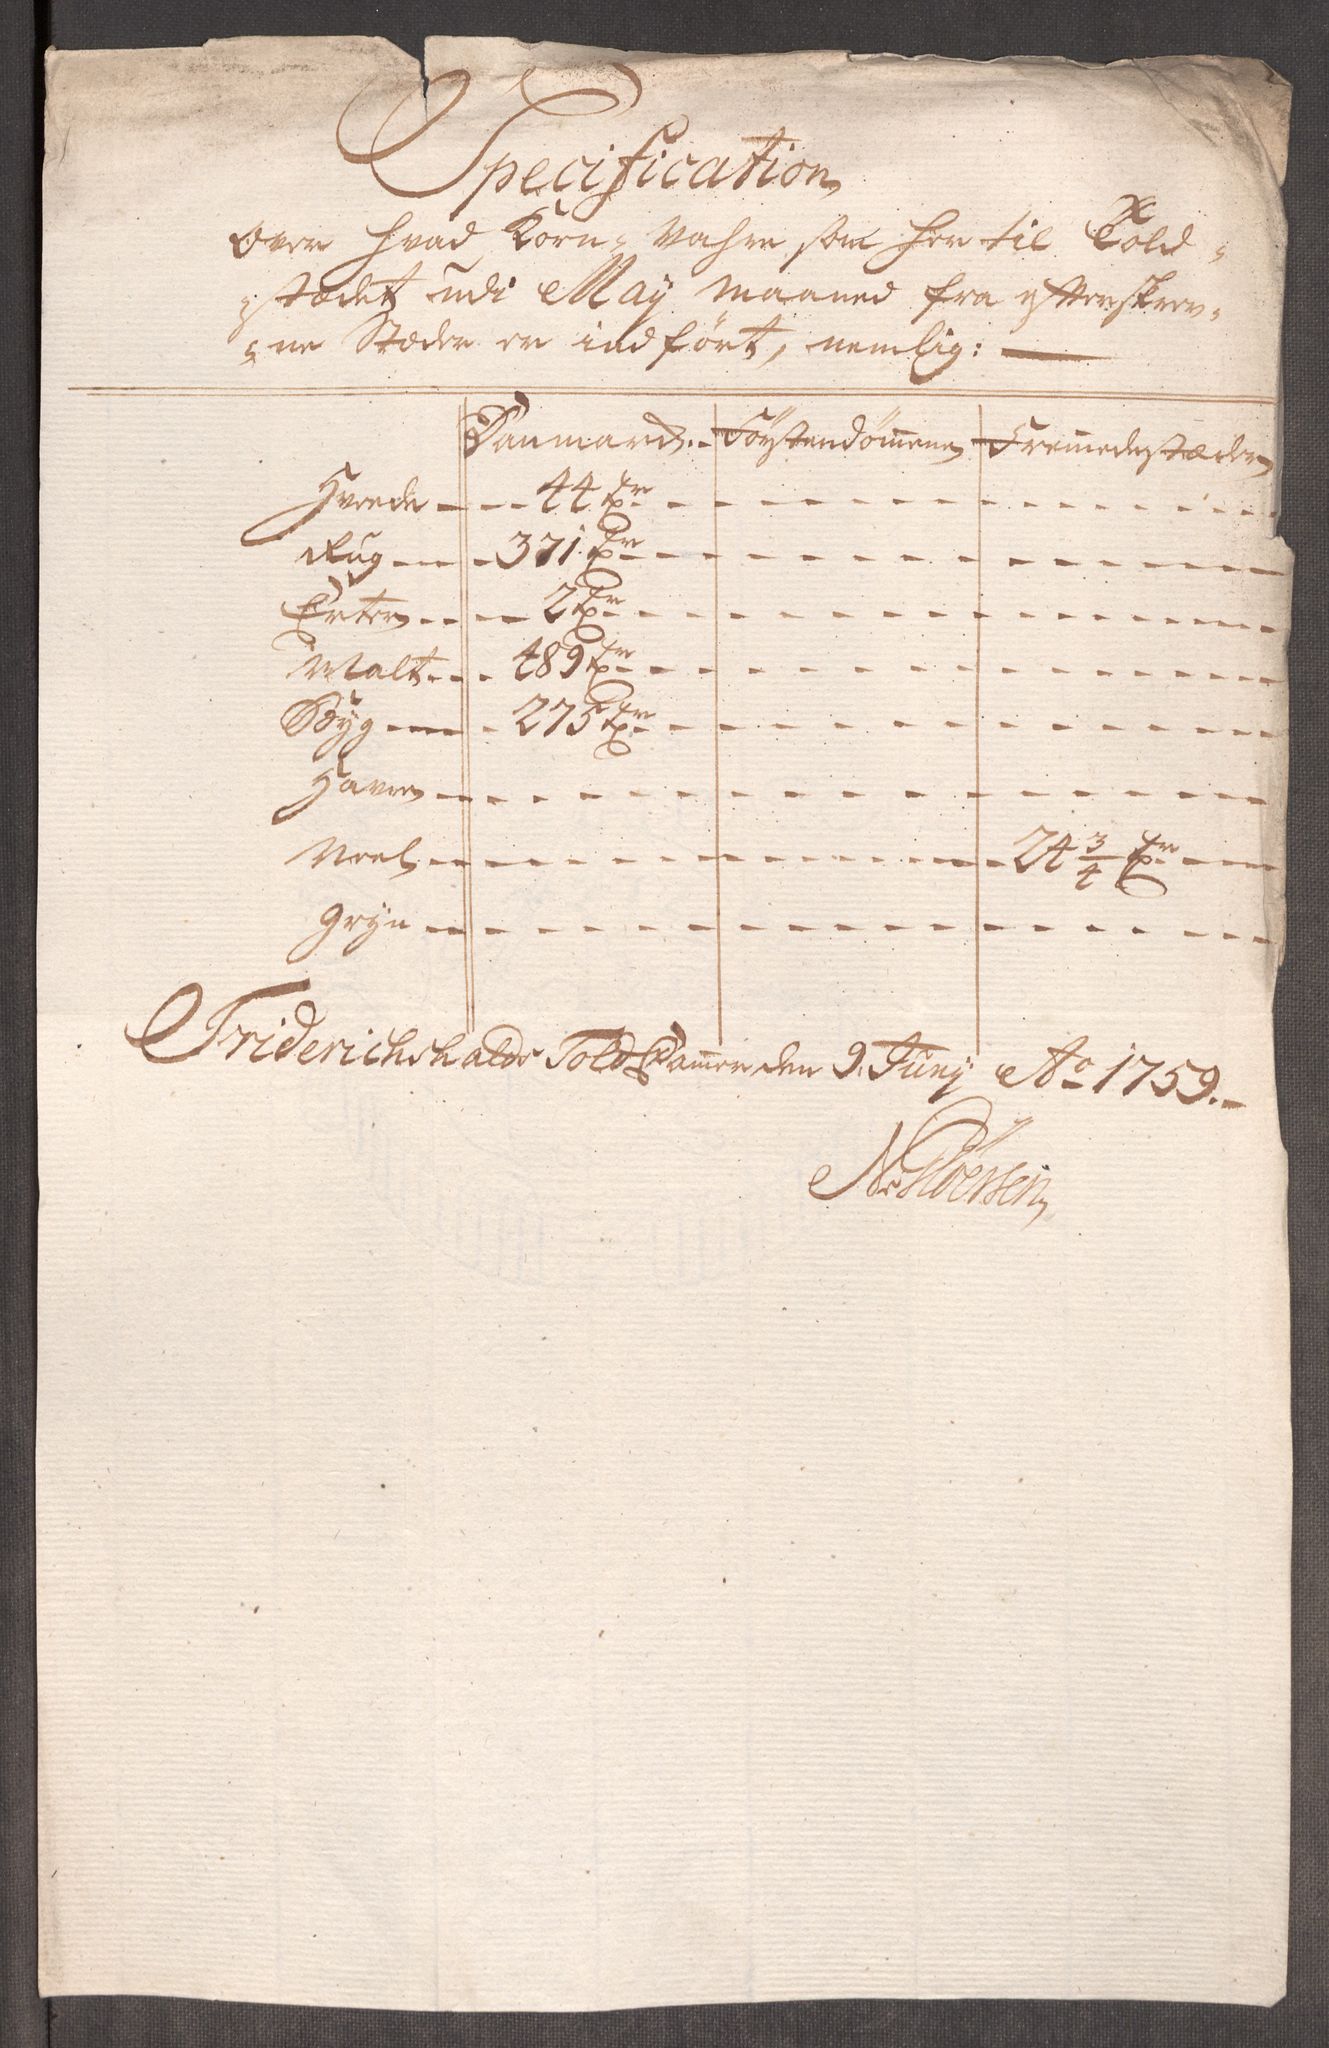 Specification
Over Hvad Korn- Vahre som her til Told-
-stædet udi May Maaned fra efterskrev-
-ne Stæder er indført, nemlig:
Danmark Förstendömmene Fremmede stæder
Hvede 44 Tr
Rug 371 Tr
Erter 2 Tr
Malt 489 Tr
Byg 275 Tr
Havre
Meel 24 3/4 Tr
Gryn
Friderichshalds Told Kammer den 9. Juny Ao 1759.